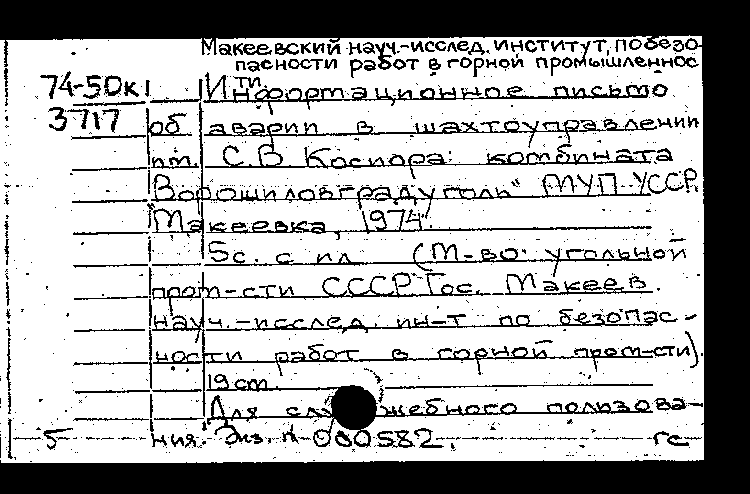 Макеевский науч.-исслед. институт, по безо-
пасности работ в горной промышленнос
ти
74-5Dк Информационное письмо
3717 об аварии в шахтоуправлении
им. С.В Косиора: комбината
"Ворошиловградуголь" МУП УССР.
Макеевка, 1974.
5с. с ил (М-во. угольной
пром-сти СССР Гос. Макеев.
науч.-исслед. ин-т по безопас-
ности работ в горной пром-сти).
19 cm.
Для служебного пользова-
5 ния. Экз. N 000582. гс